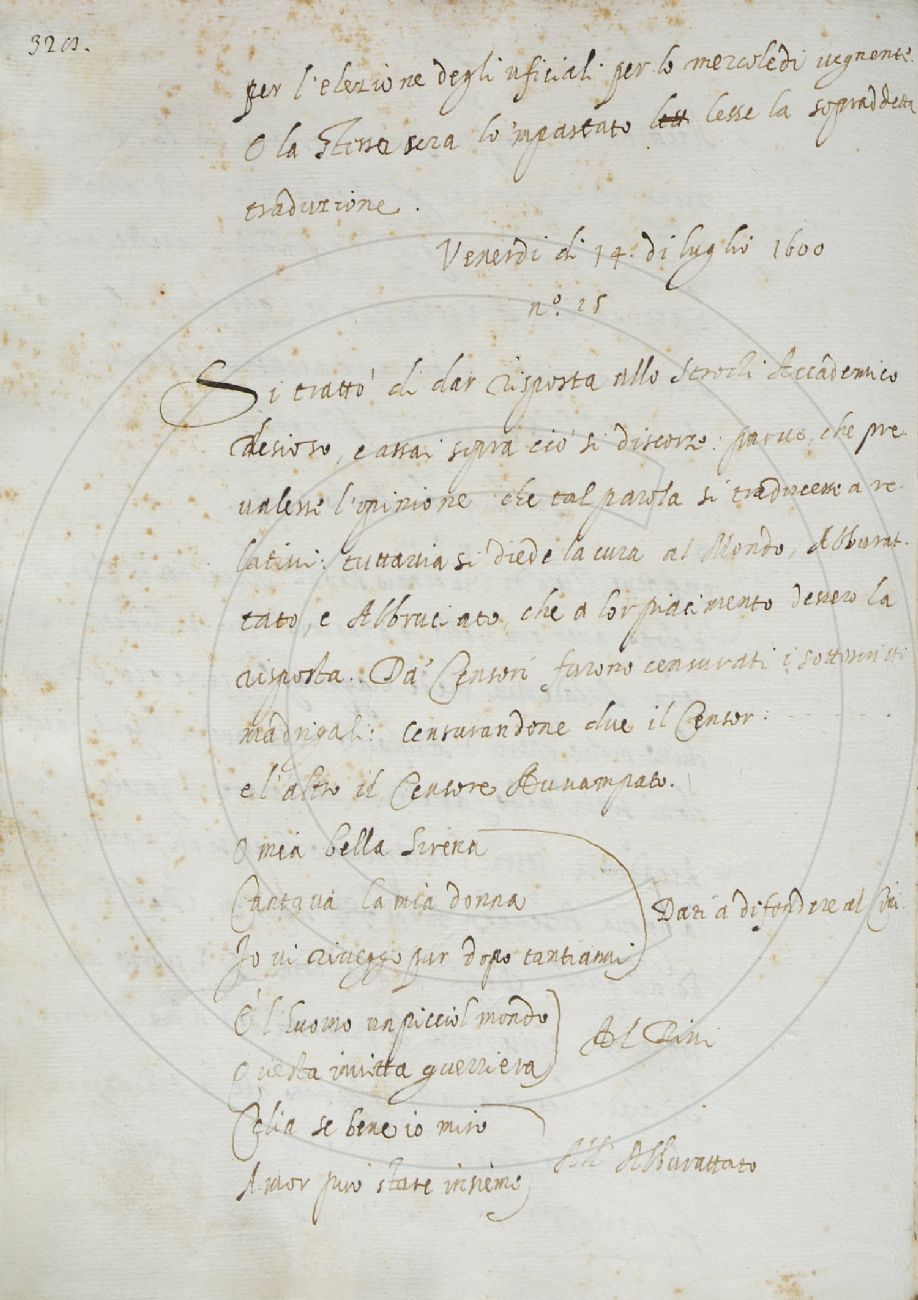 per l'elezione degli uficiali per lo mercoledi vegnente.
E la stessa sera lo 'mpastato lesse la sopraddetta
traduzione.
Venerdi di 14. di luglio 1600
n.º 15
Si trattò di dar risposta allo Strozzi Accademico
desioso, e assai sopra ciò si discorse: parve, che pre-
valesse l'opinione, che tal parola si traducesse a re-
lativi: tuttavia si diede la cura al Mondo, Abburat-
tato, e Abbruciato, che a lor piacimento dessero la
risposta. Da' Censori furono censurati i sottoscritti
madrigali: censurandone due il Censor:
e l'altro il Censore Avvampato.
O mia bella Sirena
Cantava la mia donna
Io vi riveggo pur dopo tanti anni
Dati a difendere al
È l'huomo un picciol mondo
Questa invitta guerriera
Al
Celia se bene io miro
Amor può stare insieme
All' Abburattato